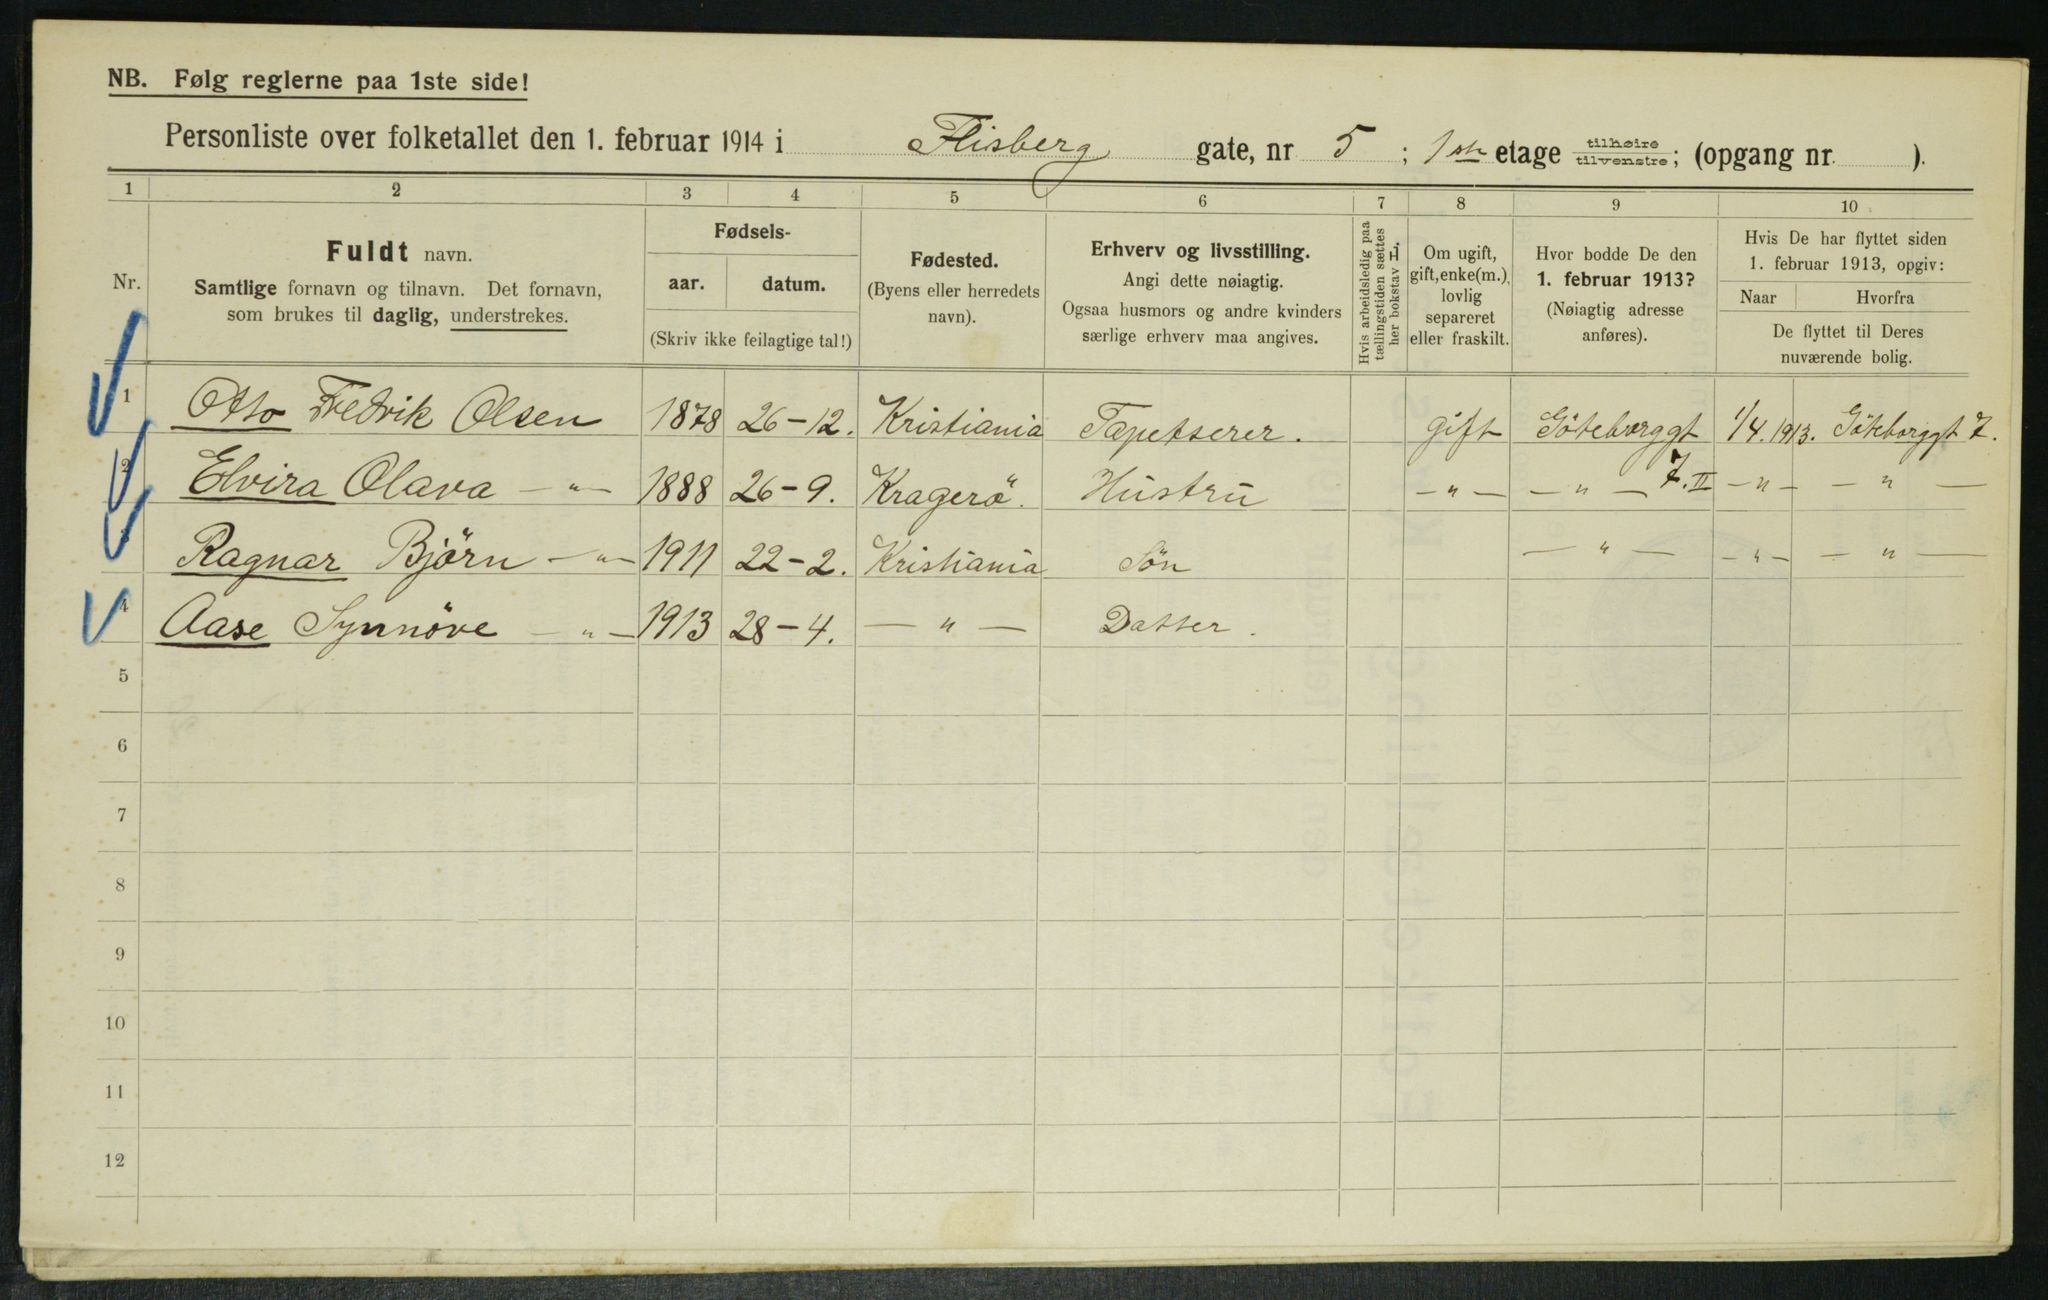 NB. Følg reglerne paa 1ste side!
Personliste over folketallet den 1. februar 1914 i Flisberg gate, nr 5 ; 1ste etage tilhøire tilvenstre; (opgang nr ).
1 2 3 4 5 6 7 8 9 10
Nr.
Fuldt navn.
Samtlige fornavn og tilnavn. Det fornavn,
som brukes til daglig, understrekes.
Fødsels-
aar. datum.
(Skriv ikke feilagtige tal!)
Fødested.
(Byens eller herredets
navn).
Erhverv og livsstilling.
Angi dette nøiagtig.
Ogsaa husmors og andre kvinders
særlige erhverv maa angives.
Hvis arbeidsledig paa
tællingstiden sættes
her bokstav L.
Om ugift,
gift, enke(m.),
lovlig
separeret
eller fraskilt.
Hvor bodde De den
1. februar 1913?
(Nøiagtig adresse
anføres).
Hvis De har flyttet siden
1. februar 1913, opgiv:
Naar Hvorfra
De flyttet til Deres
nuværende bolig.
1 Otto Fredrik Olsen 1878 26-12. Kristiania Tapetserer. gift Göteborggt 1/4.1913. Göteborggt 7.
2 Elvira Olava — " — 1888 26-9. Kragerö. Hustru — " — — " — 7.II — " — — " —
3 Ragnar Björn — " — 1911 22-2. Kristiania Sön — " — — " — — " —
4 Aase Synnöve — " — 1913 28-4. — " — Datter.
5
6
7
8
9
10
11
12